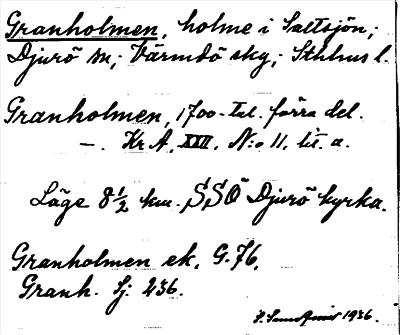 Granholmen, holme i Saltsjön;
Djurö sn; Värmdö sky; Sthlms l.
Granholmen, 1700-tal. förra del.
—. Kr A, XXII, N:o 11, lit. a.
Läge 8½ km. SSÖ Djurö kyrka.
Granholmen ek. G.76.
Granh. Sj: 236.
1936.